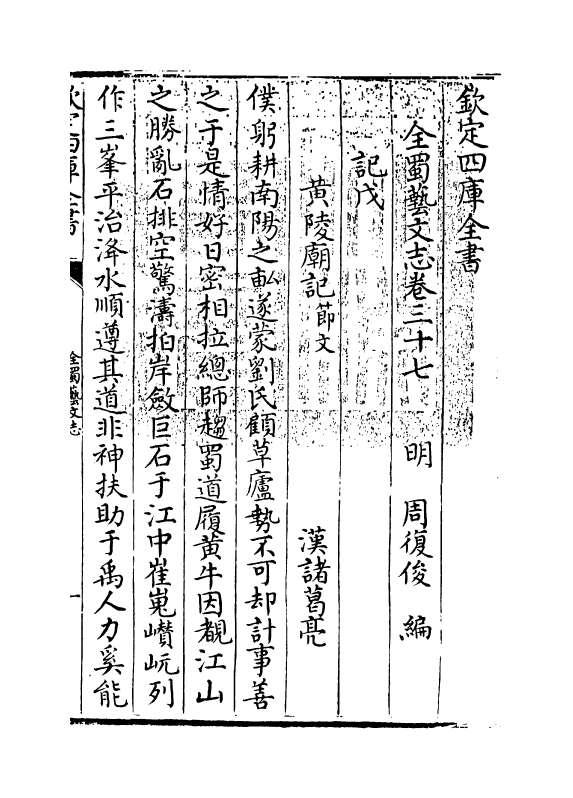 欽定四庫全書
全蜀藝文志卷三十七　明　周復俊　編
記戊
黃陵廟記節文　漢諸葛亮
僕躬耕南陽之畝遂蒙劉氏顧草廬勢不可却計事善
之于是情好日密相拉總師趨蜀道履黃牛因覩江山
之勝亂石排空驚濤拍岸斂巨石于江中崔嵬巑岏列
作三峯平治洚水順遵其道非神扶助于禹人力奚能
欽定四庫全書
全蜀藝文志
一